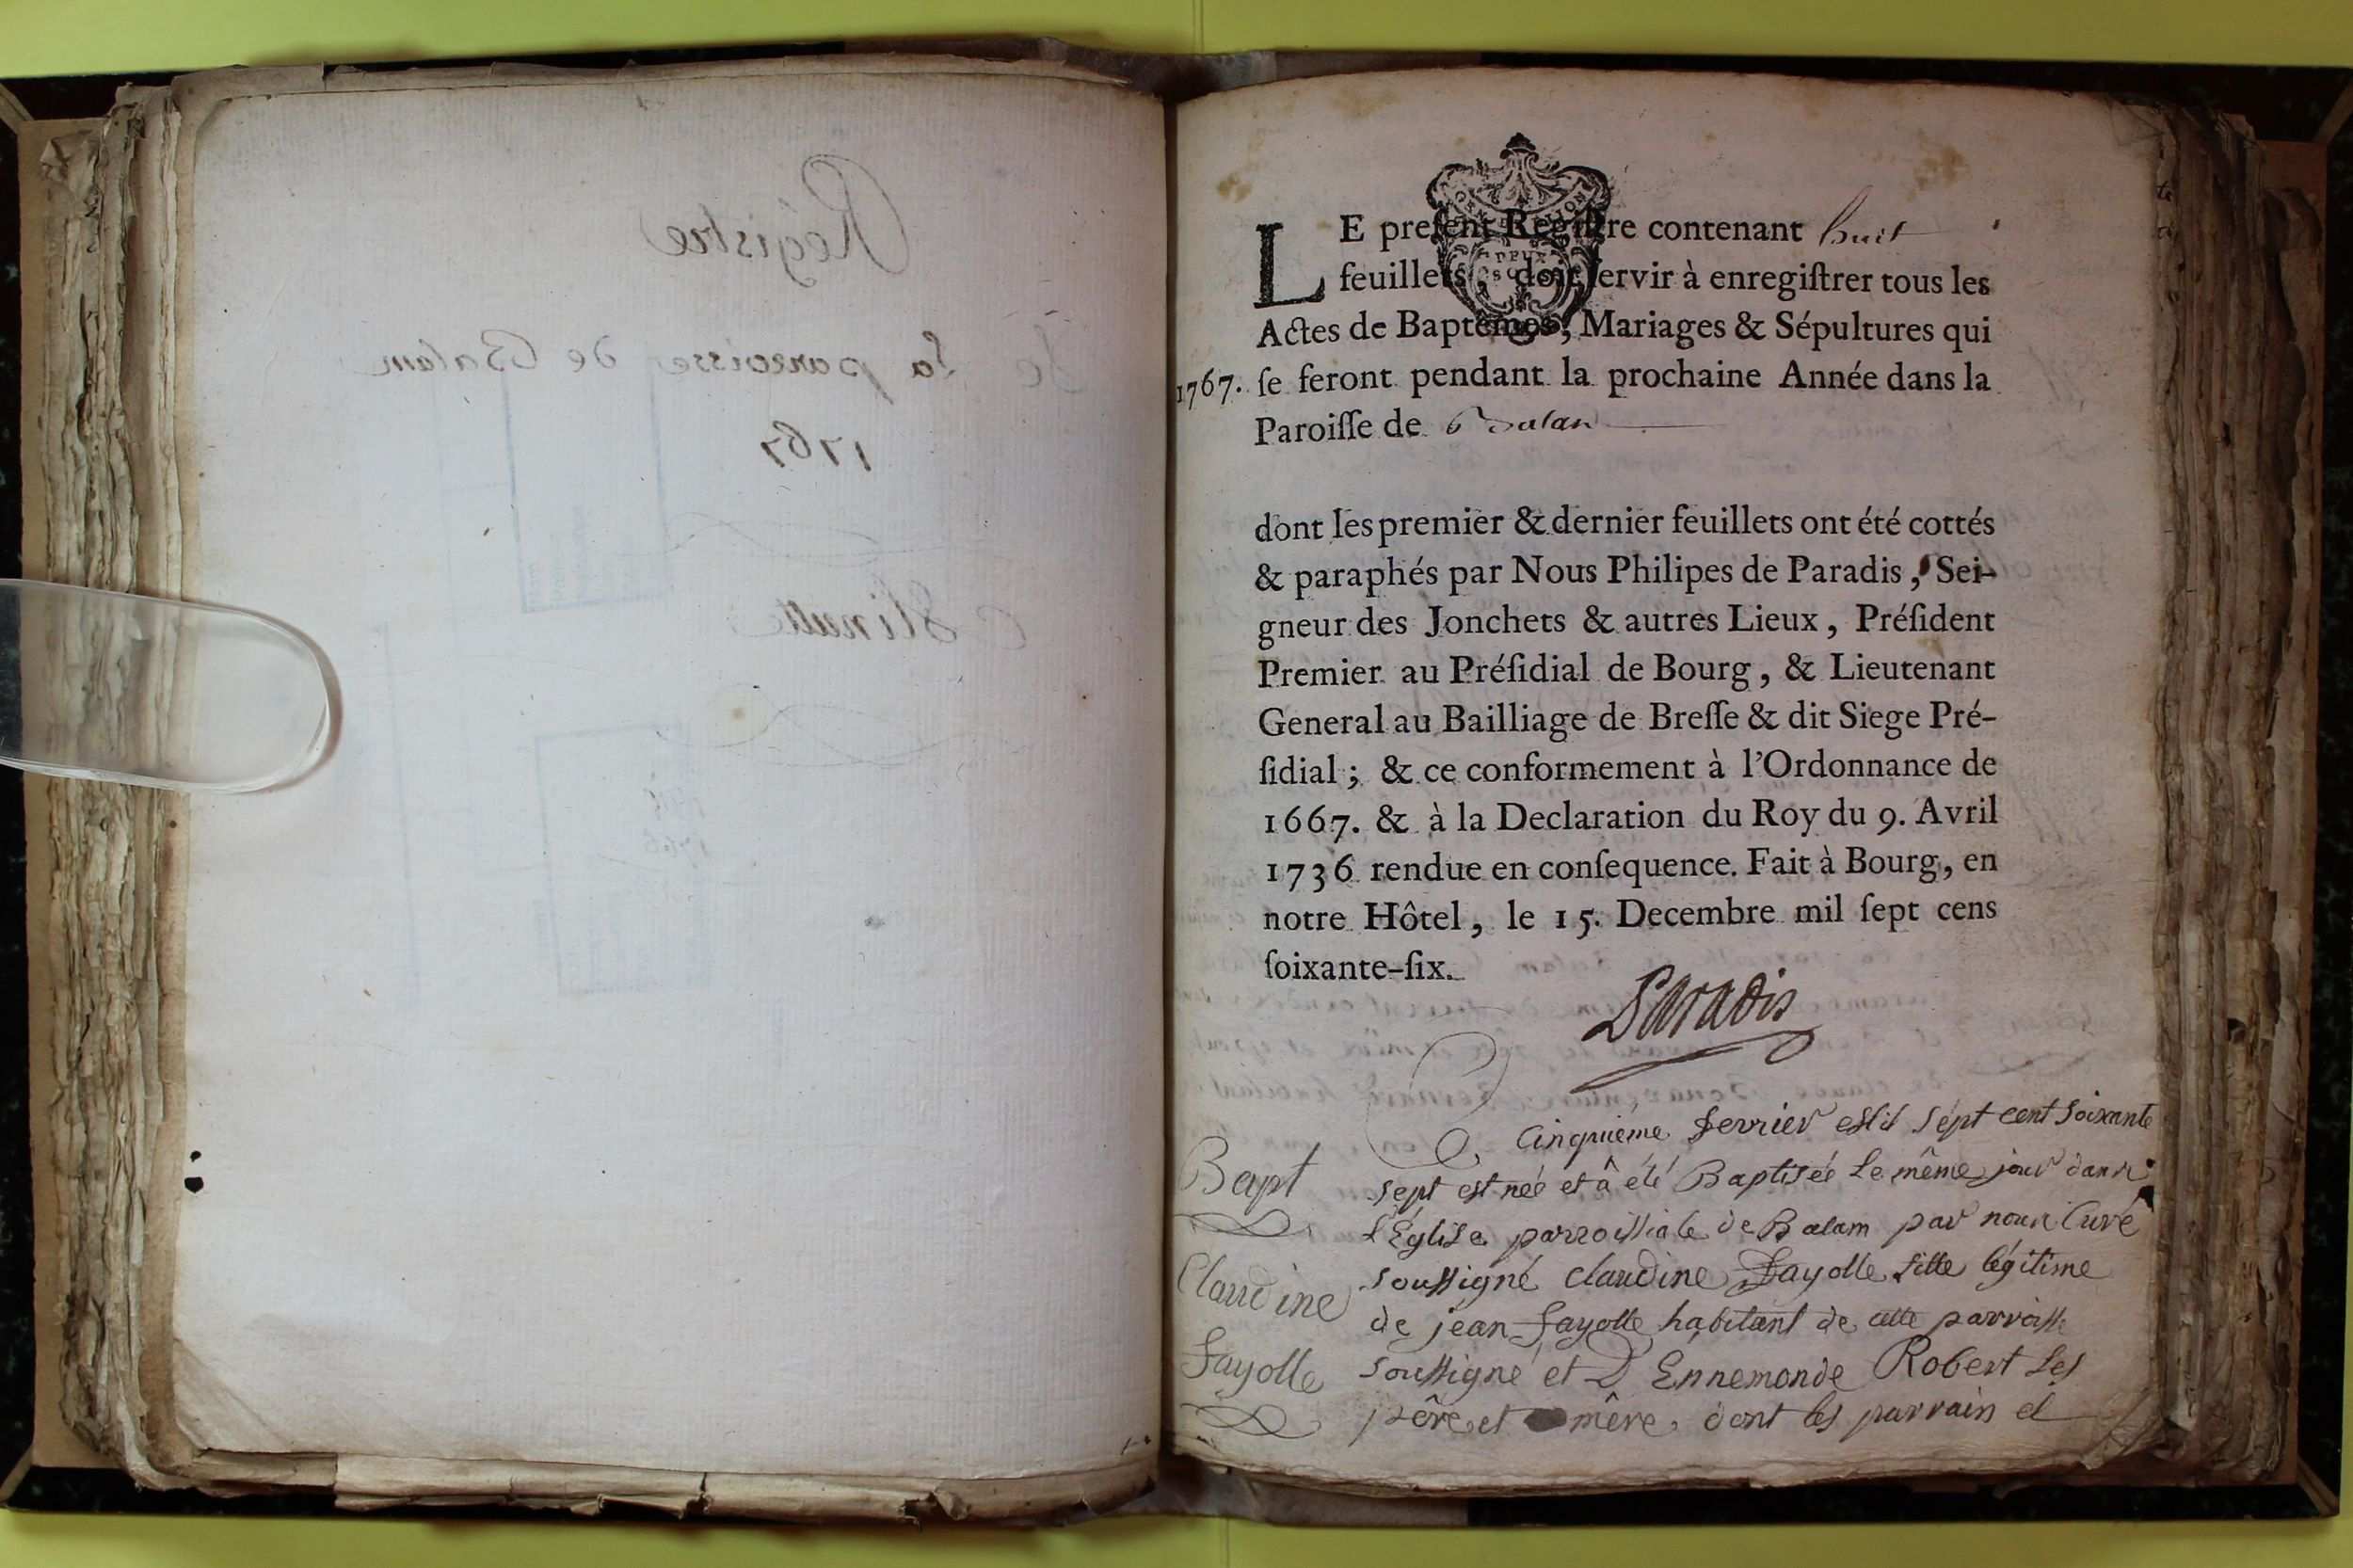 Régistre
De la parroisse de Balam
1767
Minutte
LE preſent Regiſtre contenant huit
feuillets, doit ſervir à enregiſtrer tous les
Actes de Baptêmes, Mariages & Sépultures qui
1767. ſe feront pendant la prochaine Année dans la
Paroiſſe de Balan
dont les premier & dernier feuillets ont été cottés
& paraphés par Nous Philipes de Paradis, Sei-
gneur des Jonchets & autres Lieux, Préſident
Premier au Préſidial de Bourg, & Lieutenant
General au Bailliage de Breſſe & dit Siege Pré-
ſidial; & ce conformement à l'Ordonnance de
1667. & à la Declaration du Roy du 9. Avril
1736 rendue en conſequence. Fait à Bourg, en
notre Hôtel, le 15. Decembre mil ſept cens
ſoixante-ſix.
Paradis
Cinquiéme fevrier sept cent soixante
Bapt
sept est neé et â été Baptisée Le même jour dans
L'Eglise parroissiale de Balam par nous Curé
Claudine
soussigné claudine Fayolle fille légitime
de jean fayolle habitant de cette parroisse
Fayolle
soussigné et D Ennemonde Robert ses
pêre et mêre dont les parrain et